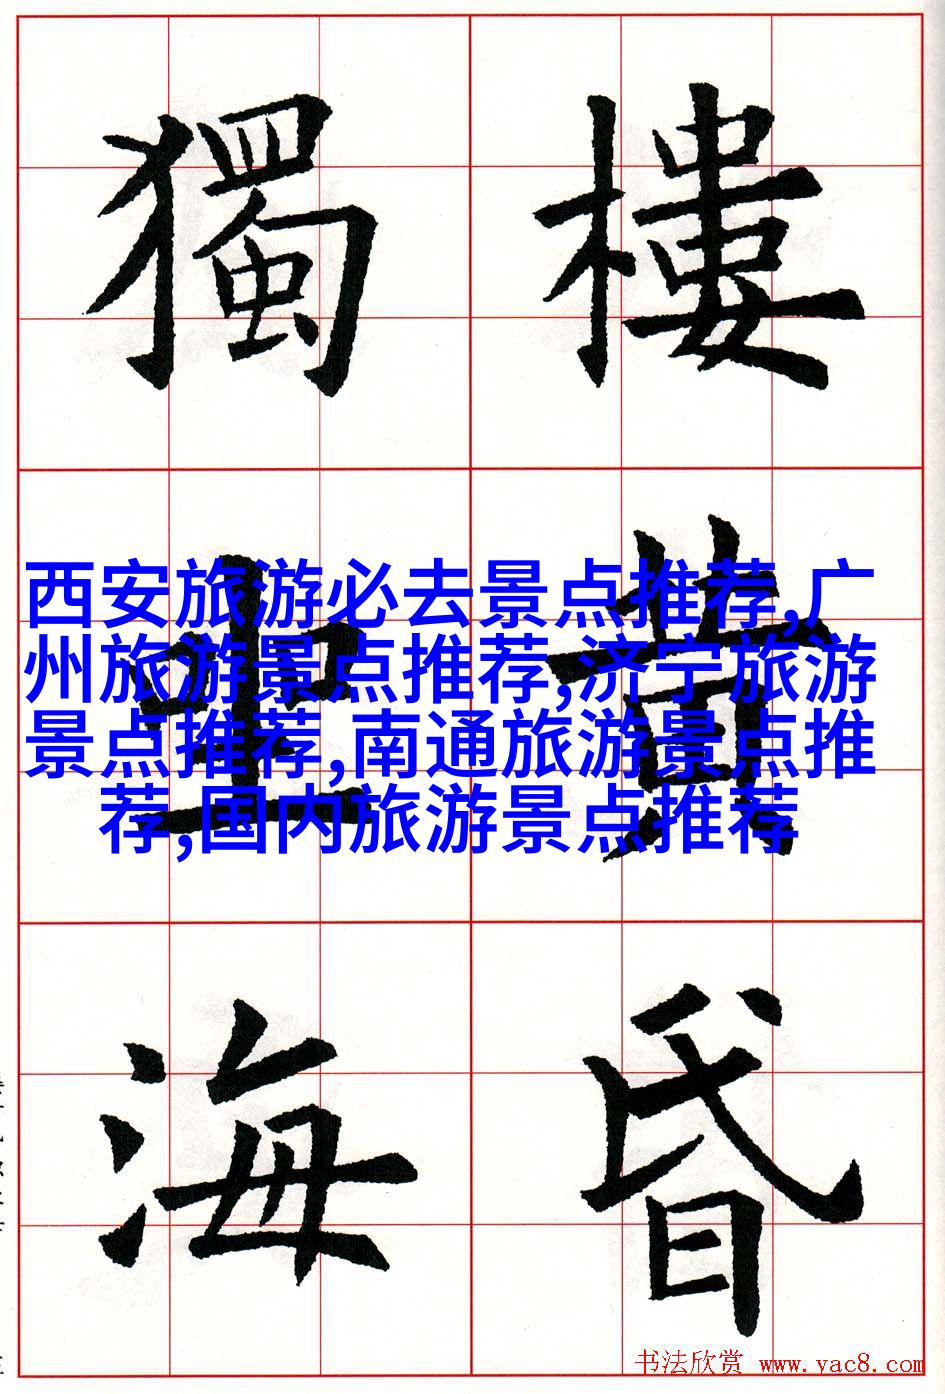 樓黄昏
獨坐海
西安旅游必去景点推荐,广
州旅游景点推荐,济宁旅游
景点推荐,南通旅游景点推
荐,国内旅游景点推荐
书法欣赏 www.yac8.com